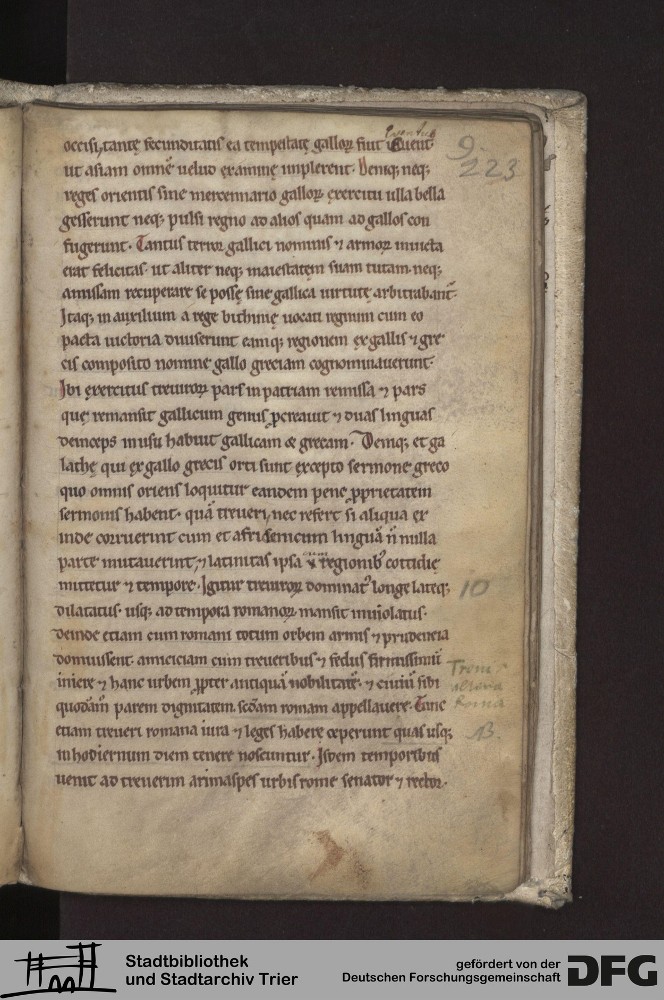 iuventus
9
223
occisi, tantę fecunditatis ea tempestatę galloꝝ fuit iuuent᷒
ut asiam omnē uelud examinę implerent· Deniq; neq;
reges orientis sine mercennario galloꝝ exercitu ulla bella
gesserunt neq; pulsi regno ad alios quam ad gallos con
fugerunt· Tantus terror gallici nominis ⁊ armoꝝ inuicta
erat felicitas· ut aliter neq; maiestatem suam tutam· neq;
amissam recuperare se possę sine gallica uirtutę arbitrabant᷒·
Itaq; in auxilium a rege bithinię uocati regnum cum eo
parta uictoria diuiserunt eamq; regionem ex gallis ⁊ gre
cis composito nomine gallo greciam cognominauerunt·
Ibi exercitus treuiroꝝ pars in patriam remissa ⁊ pars
quę remansit gallicum genus ꝓcreauit ⁊ duas linguas
deinceps in usu habuit gallicam & grecam· Deniq; et ga
lathę qui ex gallo grecis orti sunt excepto sermone greco
quo omnis oriens loquitur eandem pene ꝓprietatem
sermonis habent· quā treueri, nec refert si aliqua ex
inde corruerint cum et afri fenicum linguā ñ nulla
parte mutauerint, ⁊ latinitas ipsa ⁊ regionib᷒ cottidię
mittetur ⁊ tempore· Igitur treuiroꝝ dominat᷒ longe lateq;
dilatatus· usq; ad tempora romanoꝝ mansit inuiolatus·
deinde etiam cum romani totum orbem armis ⁊ prudencia
domuissent· amiciciam cum treueribus ⁊ fedus firmissimū
iniere ⁊ hanc urbem ꝓpter antiquā nobilitatē· ⁊ ciuiū sibi
quodām̄ parem dignitatem· scd̄am romam appellauere· Tunc
etiam treueri romana iura ⁊ leges habere ceperunt quas usq;
in hodiernum diem tenere noscuntur· Isdem temporibus
uenit ad treuerim arimaspes urbis rome senator ⁊ rector·
10
Treuir
altera
Roma
Stadtbibliothek
und Stadtarchiv Trier
gefördert von der
Deutschen Forschungsgemeinschaft
DFG